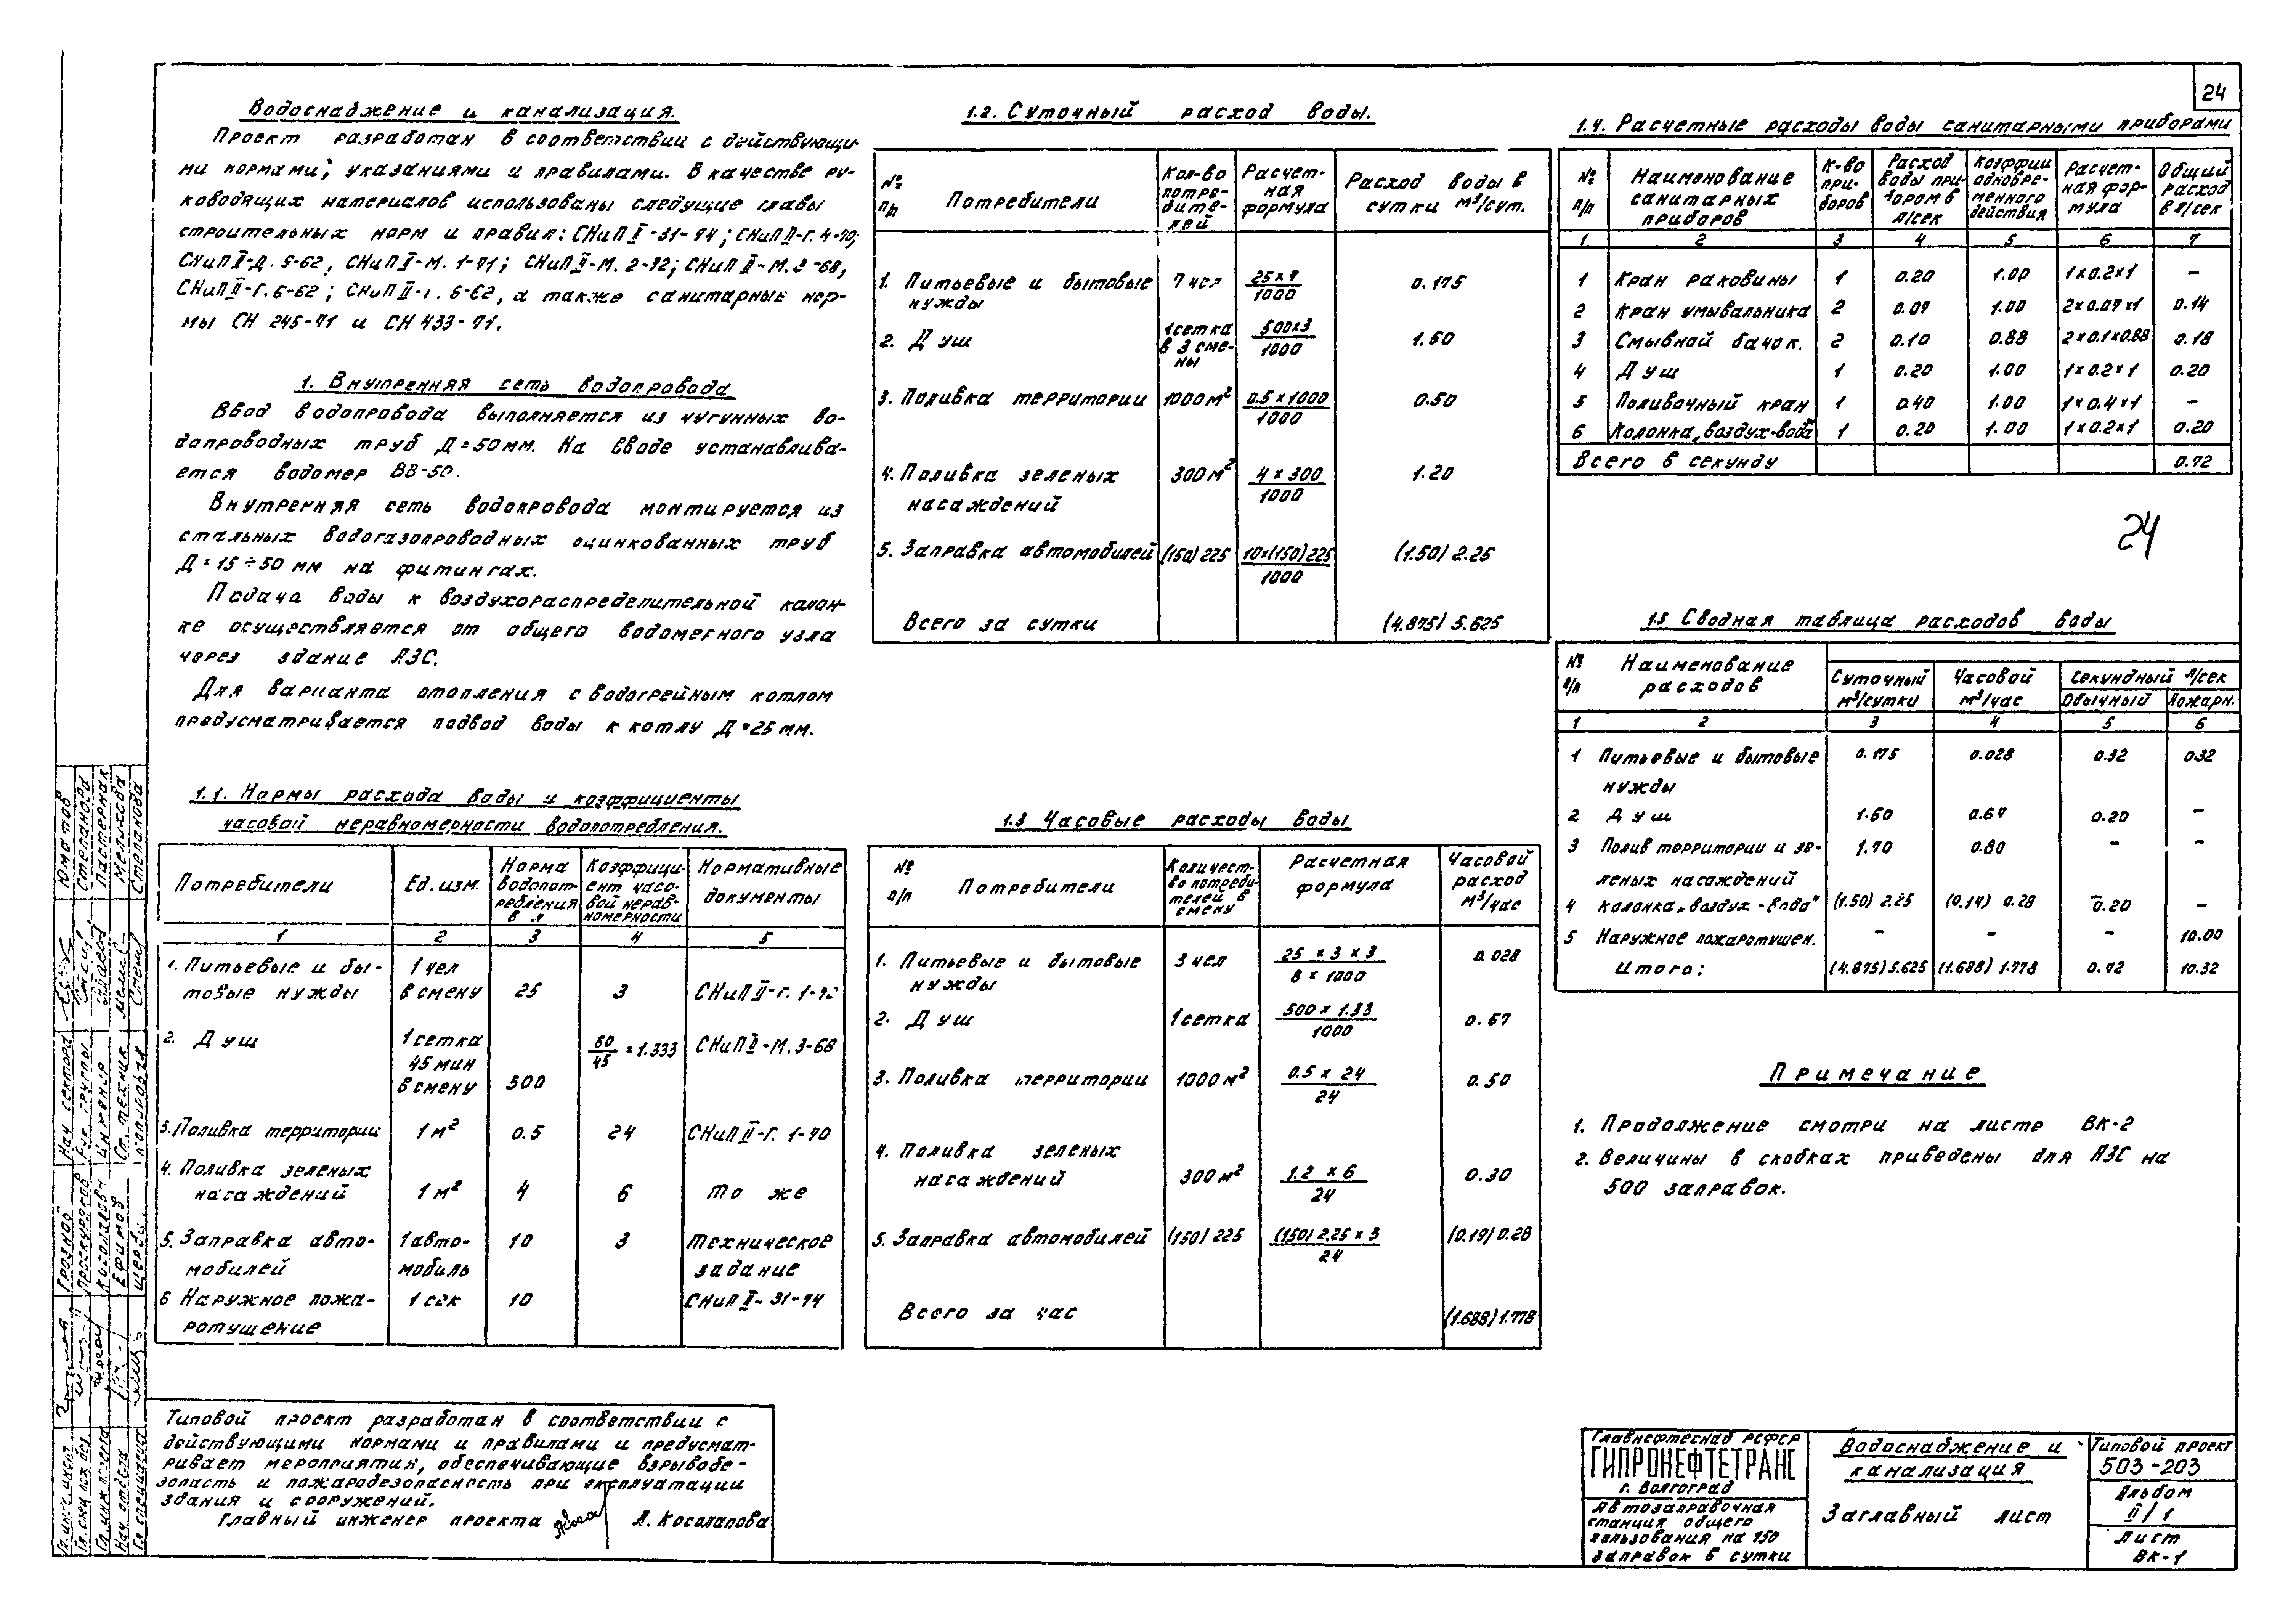 24
Водоснабжение и канализация.
Проект разработан в соответствии с действующи-
ми нормами, указаниями и правилами. В качестве ру-
ководящих материалов использованы следущие главы
строительных норм и правил: СНиП II-31-74; СНиП II-Г. 4-70;
СНиП II-Д. 5-62, СНиП II-М. 1-71; СНиП II-М. 2-72; СНиП II-М. 3-68,
СНиП II-Г. 6-62; СНиП II-Г. 6-62, а также санитарные нор-
мы СН 245-71 и СН 433-71.
1. Внутренняя сеть водопровода
Ввод водопровода выполняется из чугунных во-
допроводных труб Д=50мм. На вводе устанавлива-
ется водомер ВВ-50.
Внутренняя сеть водопровода монтируется из
стальных водогазопроводных оцинкованных труб
Д=15÷50 мм на фитингах.
Подача воды к воздухораспределительной колон-
ке осуществляется от общего водомерного узла
через здание АЗС.
Для варианта отопления с водогрейным котлом
предусматривается подвод воды к котлу Д=25мм.
1.1. Нормы расхода воды и коэффициенты
часовой неравномерности водопотребления.
Потребители | Ед. изм. | Норма водопот-ребления в л | Коэффици-ент часо-вой нерав-номерности | Нормативные документы
1 2 3 4 5
1. Питьевые и бы- 1 чел
товые нужды в смену 25 3 СНиП II-Г. 1-70
2. Душ 1 сетка 60/45 = 1.333 СНиП II-М. 3-68
45 мин
в смену 500
3. Поливка территории 1 м² 0.5 24 СНиП II-Г. 1-70
4. Поливка зеленых
насаждений 1 м² 4 6 То же
5. Заправка авто- 1 авто- 10 3 Техническое
мобилей мобиль задание
6 Наружное пожа- 1 сек 10 СНиП II-31-74
ротушение
1.2. Суточный расход воды.
№ п/п | Потребители | Кол-во потре-бите-лей | Расчет-ная формула | Расход воды в сутки м³/сут.
1. Питьевые и бытовые 7 чел 25×7/1000 0.175
нужды
2. Душ 1 сетка в 3 сме-ны 500×3/1000 1.50
3. Поливка территории 1000 м² 0.5×1000/1000 0.50
4. Поливка зеленых 300 м² 4×300/1000 1.20
насаждений
5. Заправка автомобилей (150) 225 10×(150)225/1000 (1.50) 2.25
Всего за сутки (4.875) 5.625
1.3 Часовые расходы воды
№ п/п | Потребители | Количест-во потреби-телей в смену | Расчетная формула | Часовой расход м³/час
1. Питьевые и бытовые 3 чел 25×3×3/8×1000 0.028
нужды
2. Душ 1 сетка 500×1.33/1000 0.67
3. Поливка территории 1000 м² 0.5×24/24 0.50
4. Поливка зеленых
насаждений 300 м² 1.2×6/24 0.30
5. Заправка автомобилей (150) 225 (150) 2.25×3/24 (0.19) 0.28
Всего за час (1.688) 1.778
1.4. Расчетные расходы воды санитарными приборами
№ п/п | Наименование санитарных приборов | К-во при-боров | Расход воды при-бором в л/сек | Коэффи одновре-менного действия | Расчет-ная фор-мула | Общий расход в л/сек
1 2 3 4 5 6 7
1 Кран раковины 1 0.20 1.00 1×0.2×1 –
2 Кран умывальника 2 0.07 1.00 2×0.07×1 0.14
3 Смывной бачок. 2 0.10 0.88 2×0.1×0.88 0.18
4 Душ 1 0.20 1.00 1×0.2×1 0.20
5 Поливочный кран 1 0.40 1.00 1×0.4×1 –
6 Колонка „воздух-вода" 1 0.20 1.00 1×0.2×1 0.20
Всего в секунду 0.72
24
1.5 Сводная таблица расходов воды
№ п/п | Наименование расходов | Суточный м³/сутки | Часовой м³/час | Секундный л/сек | Обычный | Пожарн.
1 2 3 4 5 6
1 Питьевые и бытовые 0.175 0.028 0.32 0.32
нужды
2 Душ 1.50 0.67 0.20 –
3 Полив территории и зе- 1.70 0.80 – –
леных насаждений
4 Колонка „воздух-вода" (1.50) 2.25 (0.14) 0.28 0.20 –
5 Наружное пожаротушен. – – – 10.00
Итого: (4.875) 5.625 (1.688) 1.778 0.72 10.32
Примечание
1. Продолжение смотри на листе ВК-2
2. Величины в скобках приведены для АЗС на
500 заправок.
Типовой проект разработан в соответствии с
действующими нормами и правилами и предусмат-
ривает мероприятия, обеспечивающие взрывобе-
зопасть и пожаробезопасность при эксплуатации
здания и сооружений.
Главный инженер проекта А. Косолапова
Главнефтеснаб РСФСР
ГИПРОНЕФТЕТРАНС
г. Волгоград
Автозаправочная
станция общего
пользования на 750
заправок в сутки
Водоснабжение и
канализация
Заглавный лист
Типовой проект
503-203
Альбом
II/1
Лист
ВК-1
Нач. сектора Юматов
Рук. группы Степанова
Инженер Пастернак
Ст. техник Мелихова
Копировал Степанова
Грознов
Проскуряков
Нач. отдела Ефимов
Гл. специалист